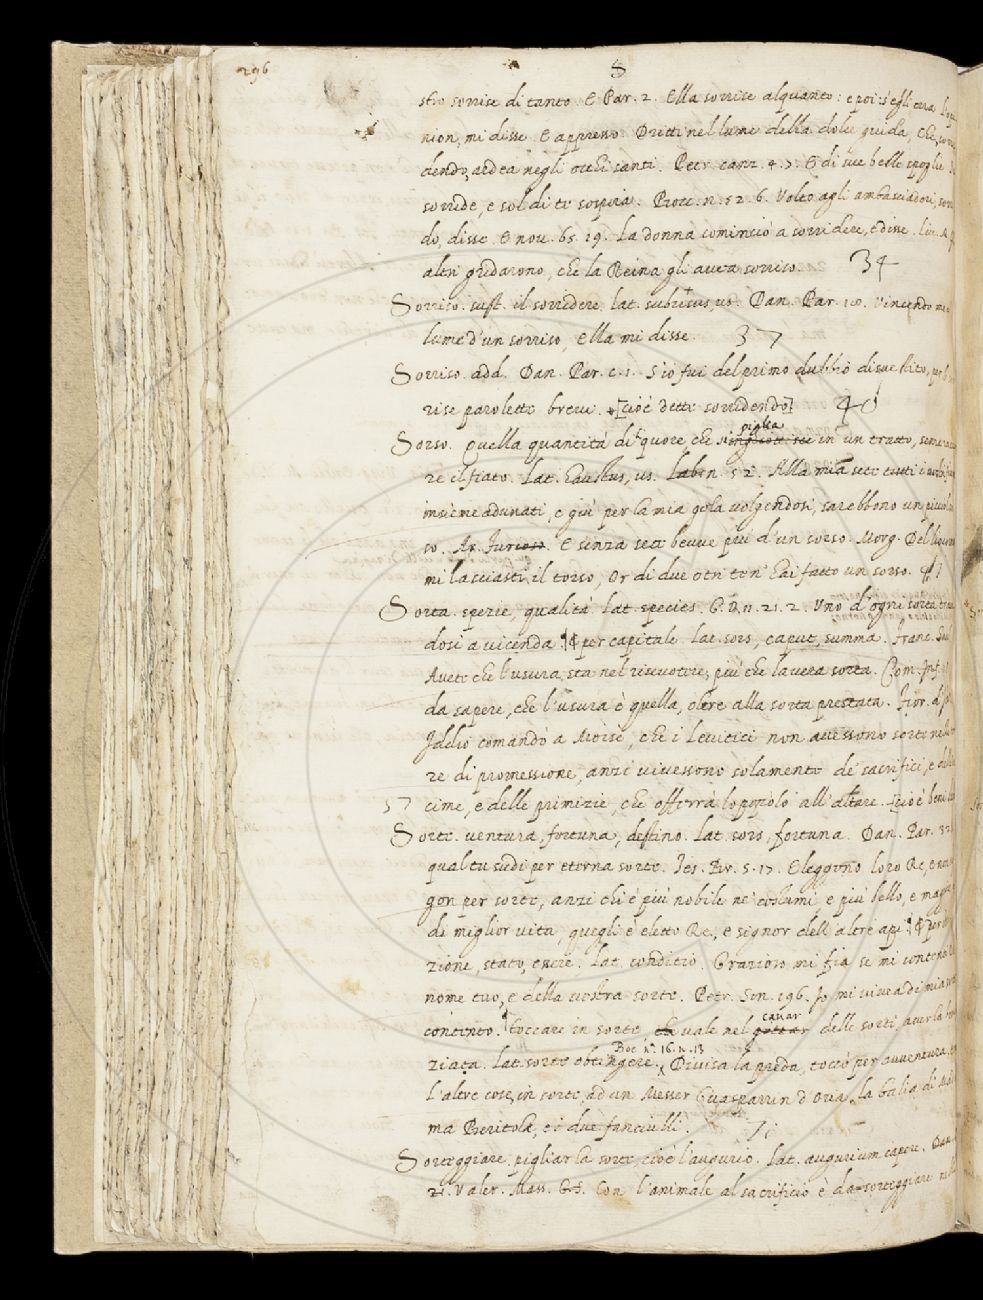 296
S
stro sorrise di tanto. E Par. 2. Ella sorrise alquanto: e poi: s'egli erra
nion, mi disse. E appresso. Dritti nel lume della dolce guida Che, sorri
dendo, ardea negli occhi santi. Petr. canz. 4. 7. E di sue belle spoglie
sorride, e sol di te sospira. Bocc. n. 52. 6. Volto agli ambasciadori, sorri
do, disse. E nov. 65. 19. La donna cominciò a sorridere, e disse. Liv. M.
altri gridarono, che la Reina gli avea sorriso. 34
Sorriso. sust. il sorridere. lat. subrisus, us. Dan. Par. 18. Vincendo me
lume d'un sorriso, Ella mi disse. 37
Sorriso. add. Dan. Par. c. 1. S'io fui del primo dubbio disvestito, per le
rise parolette brevi. [cioè dette sorridendo] 40
Sorso. quella quantità di liquore che piglia si in un tratto, senza
re il fiato. Lat. haustus, us. Labin. 52. Alla mia sete tutti i
insieme adunati, e giù per la mia gola volgendosi, sarebbono un piccolo
so. Ar. Furioso. E senza sete bevve più d'un sorso. Morg. Del liquore
mi lasciasti il torso, Or di due otri ten' hai fatto un sorso.
Sorta. spezie, qualità. lat. species. G. V. 11. 21. 2. Uno d'ogni sorta
dosi a vicenda. per capitale. lat. sors, caput, summa. Franc. Sac
Avete che l'usura sta nel riscuotere, più che la vera sorta. Com. Inf.
da sapere, che l'usura è quella, oltre alla sorta prestata. Fior. d'
Iddio comandò a Moisè, che i Levitici non avessono sorte nella
re di promessione, anzi vivessono solamente de' sacrifici, e
57 cime, e delle primizie, che offerrà lo popolo all'altare. [cioè beni
Sorte. ventura, fortuna, destino. lat. sors, fortuna. Dan. Par. 32.
qual tu siedi per eterna sorte. Tes. Br. 5. 17. Eleggono loro Re, e non
gon per sorte, anzi chi è più nobile ne' costumi, e più bello, e
di miglior vita, quegli è eletto Re, e signor dell'altre api. per
zione, stato, essere. lat. conditio. Grazioso mi fia se mi contenti
nome tuo, e della vostra sorte. Petr. Son. 196. Io mi vivea di mia sorte
contento. toccare in sorte, vale nel cavar delle sorti, aver la
ziata. lat. sorte obtingere. Boc. n. 16. n. 13 Divisa la preda, toccò per avventura
l'altre cose, in sorte, ad un Messer Guasparrin d'Oria, la balia di Mada
ma Beritola, e i due fanciulli.
Sorteggiare. pigliar la sorte, cioè l'augurio. lat. augurium capere. Dan.
21. Valer. Mass. G. S. Con l'animale al sacrificio è da sorteggiare